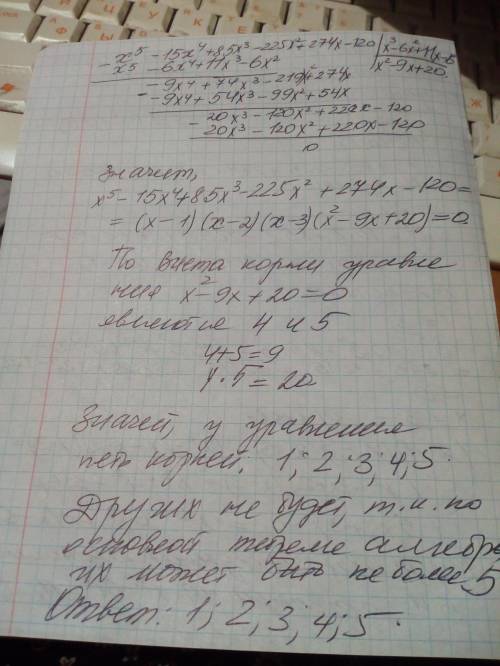 x⁵ - 15x⁴ + 85x³ - 225x² + 274x - 120 | x³ - 6x² + 11x - 6
x⁵ - 6x⁴ + 11x³ - 6x² | x² - 9x + 20
- 9x⁴ + 74x³ - 219x² + 274x
- 9x⁴ + 54x³ - 99x² + 54x
20x³ - 120x² + 220x - 120
20x³ - 120x² + 220x - 120
0
Значет,
x⁵ - 15x⁴ + 85x³ - 225x² + 274x - 120 =
= (x-1)(x-2)(x-3)(x² - 9x + 20) = 0
По Виета корни уравне
ния x² - 9x + 20 = 0
являются 4 и 5
4+5=9
4·5=20
Значет, у уравнения
пять корней. 1; 2; 3; 4; 5.
Других не будет, т.к. по
основной теореме алгебры
их может быть не более 5
Ответ: 1; 2; 3; 4; 5.